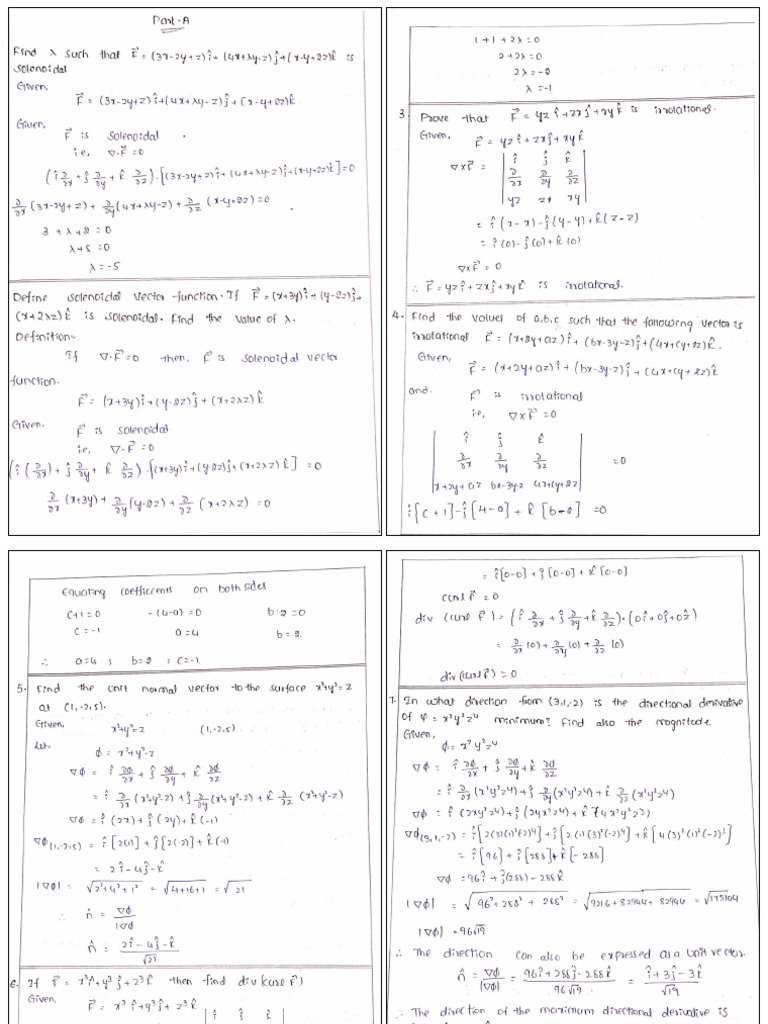 Part-A
Find λ such that F⃗ = (3x-2y+z)î+(4x+λy-z)ĵ+(x-y+2z)k̂ is
solenoidal
Given,
F⃗ = (3x-2y+z)î+(4x+λy-z)ĵ+(x-y+2z)k̂
Given,
F⃗ is solenoidal
i.e, ∇·F⃗ =0
(î ∂/∂x +ĵ ∂/∂y + k̂ ∂/∂z)·[(3x-2y+z)î+(4x+λy-z)ĵ+(x-y+2z)k̂]=0
∂/∂x (3x-2y+z)+ ∂/∂y(4x+λy-z)+ ∂/∂z (x-y+2z)=0
3 +λ+2 =0
λ+5 =0
λ=-5
Define solenoidal vector function. If F⃗ = (x+3y)î+(y-2z)ĵ+
(x+2λz)k̂ is solenoidal. Find the value of λ.
Definition:-
If ∇·F⃗=0 then, F⃗ is solenoidal vector
function.
F⃗ = (x+3y)î+(y-2z)ĵ+(x+2λz)k̂
Given, F⃗ is solenoidal
i.e, ∇·F⃗ =0
(î(∂/∂x)+ĵ ∂/∂y + k̂ ∂/∂z)·[(x+3y)î+(y-2z)ĵ+(x+2λz)k̂] =0
∂/∂x (x+3y)+ ∂/∂y(y-2z)+ ∂/∂z (x+2λz)=0
1+1+2λ=0
2+2λ=0
2λ=-2
λ=-1
3. Prove that F⃗= yz î+zxĵ+xyk̂ is irrotational.
Given, F⃗ = yzî+zxĵ+xyk̂
∇xF⃗ = | î ĵ k̂ |
| ∂/∂x ∂/∂y ∂/∂z |
| yz zx xy |
= î(x-x)-ĵ(y-y)+k̂(z-z)
= î(0)-ĵ(0)+k̂(0)
∇xF⃗ =0
∴ F⃗=yzî+zxĵ+xyk̂ is irrotational.
4. Find the values of a,b,c such that the following vector is
irrotational F⃗=(x+2y+az)î+(bx-3y-z)ĵ+(4x+cy+2z)k̂.
Given, F⃗ = (x+2y+az)î+(bx-3y-z)ĵ+(4x+cy+2z)k̂
and. F⃗ is irrotational
i.e, ∇xF⃗ =0
| î ĵ k̂ |
| ∂/∂x ∂/∂y ∂/∂z | =0
| x+2y+az bx-3y-z 4x+cy+2z |
î[c+1]-ĵ[4-a]+k̂[b-2] =0
Equating coefficients on both sides
c+1=0 -(4-a)=0 b-2=0
c=-1 a=4 b=2
∴ a=4 ; b=2 ; c=-1
5. Find the unit normal vector to the surface x²+y²=z
at (1,-2,5).
Given, x²+y²=z (1,-2,5)
let, ϕ = x²+y²-z
∇ϕ = î ∂ϕ/∂x +ĵ ∂ϕ/∂y + k̂ ∂ϕ/∂z
= î ∂/∂x (x²+y²-z)+ĵ ∂/∂y(x²+y²-z)+k̂ ∂/∂z (x²+y²-z)
∇ϕ = î (2x)+ĵ (2y)+k̂(-1)
∇ϕ(1,-2,5) = î[2(1)]+ĵ[2(-2)]+k̂(-1)
= 2î-4ĵ-k̂
|∇ϕ| = √2²+4²+1² = √4+16+1 = √21
∴ n̂ = ∇ϕ/|∇ϕ|
n̂ = 2î-4ĵ-k̂/√21
6. If F⃗ = x³î+y³ĵ+z³k̂ then find div(curl F⃗)
Given, F⃗ = x³î+y³ĵ+z³k̂
| î ĵ k̂ |
= î[0-0]+ĵ[0-0]+k̂[0-0]
curl F⃗ =0
div (curl F⃗)=(î ∂/∂x +ĵ ∂/∂y+k̂ ∂/∂z)·(0î+0ĵ+0ẑ)
= ∂/∂x (0)+ ∂/∂y(0)+ ∂/∂z (0)
div(curl F⃗)=0
7. In what direction from (3,1,-2) is the directional derivative
of φ=x²y²z⁴ minimum? Find also the magnitude.
Given,
ϕ= x²y²z⁴
∇ϕ = î ∂ϕ/∂x +ĵ ∂ϕ/∂y + k̂ ∂ϕ/∂z
= î ∂/∂x (x²y²z⁴)+ĵ ∂/∂y (x²y²z⁴)+k̂ ∂/∂z (x²y²z⁴)
∇ϕ = î (2xy²z⁴)+ĵ(2yx²z⁴)+k̂(4x²y²z³)
∇ϕ(3,1,-2) =î[2(3)(1)²(-2)⁴]+ĵ[2(1)(3)²(-2)⁴]+k̂[4(3)²(1)²(-2)³]
=î[96]+ĵ[288]+k̂[-288]
∇ϕ =96î+ĵ(288)-288k̂
|∇ϕ| = √96²+288²+288² = √9216+82944+82944 = √175104
|∇ϕ| =96√19
∴ The direction can also be expressed as a unit vector.
n̂ = ∇ϕ/|∇ϕ| = 96î+288ĵ-288k̂/96√19 = î+3ĵ-3k̂/√19
∴ The direction of the maximum directional derivative is